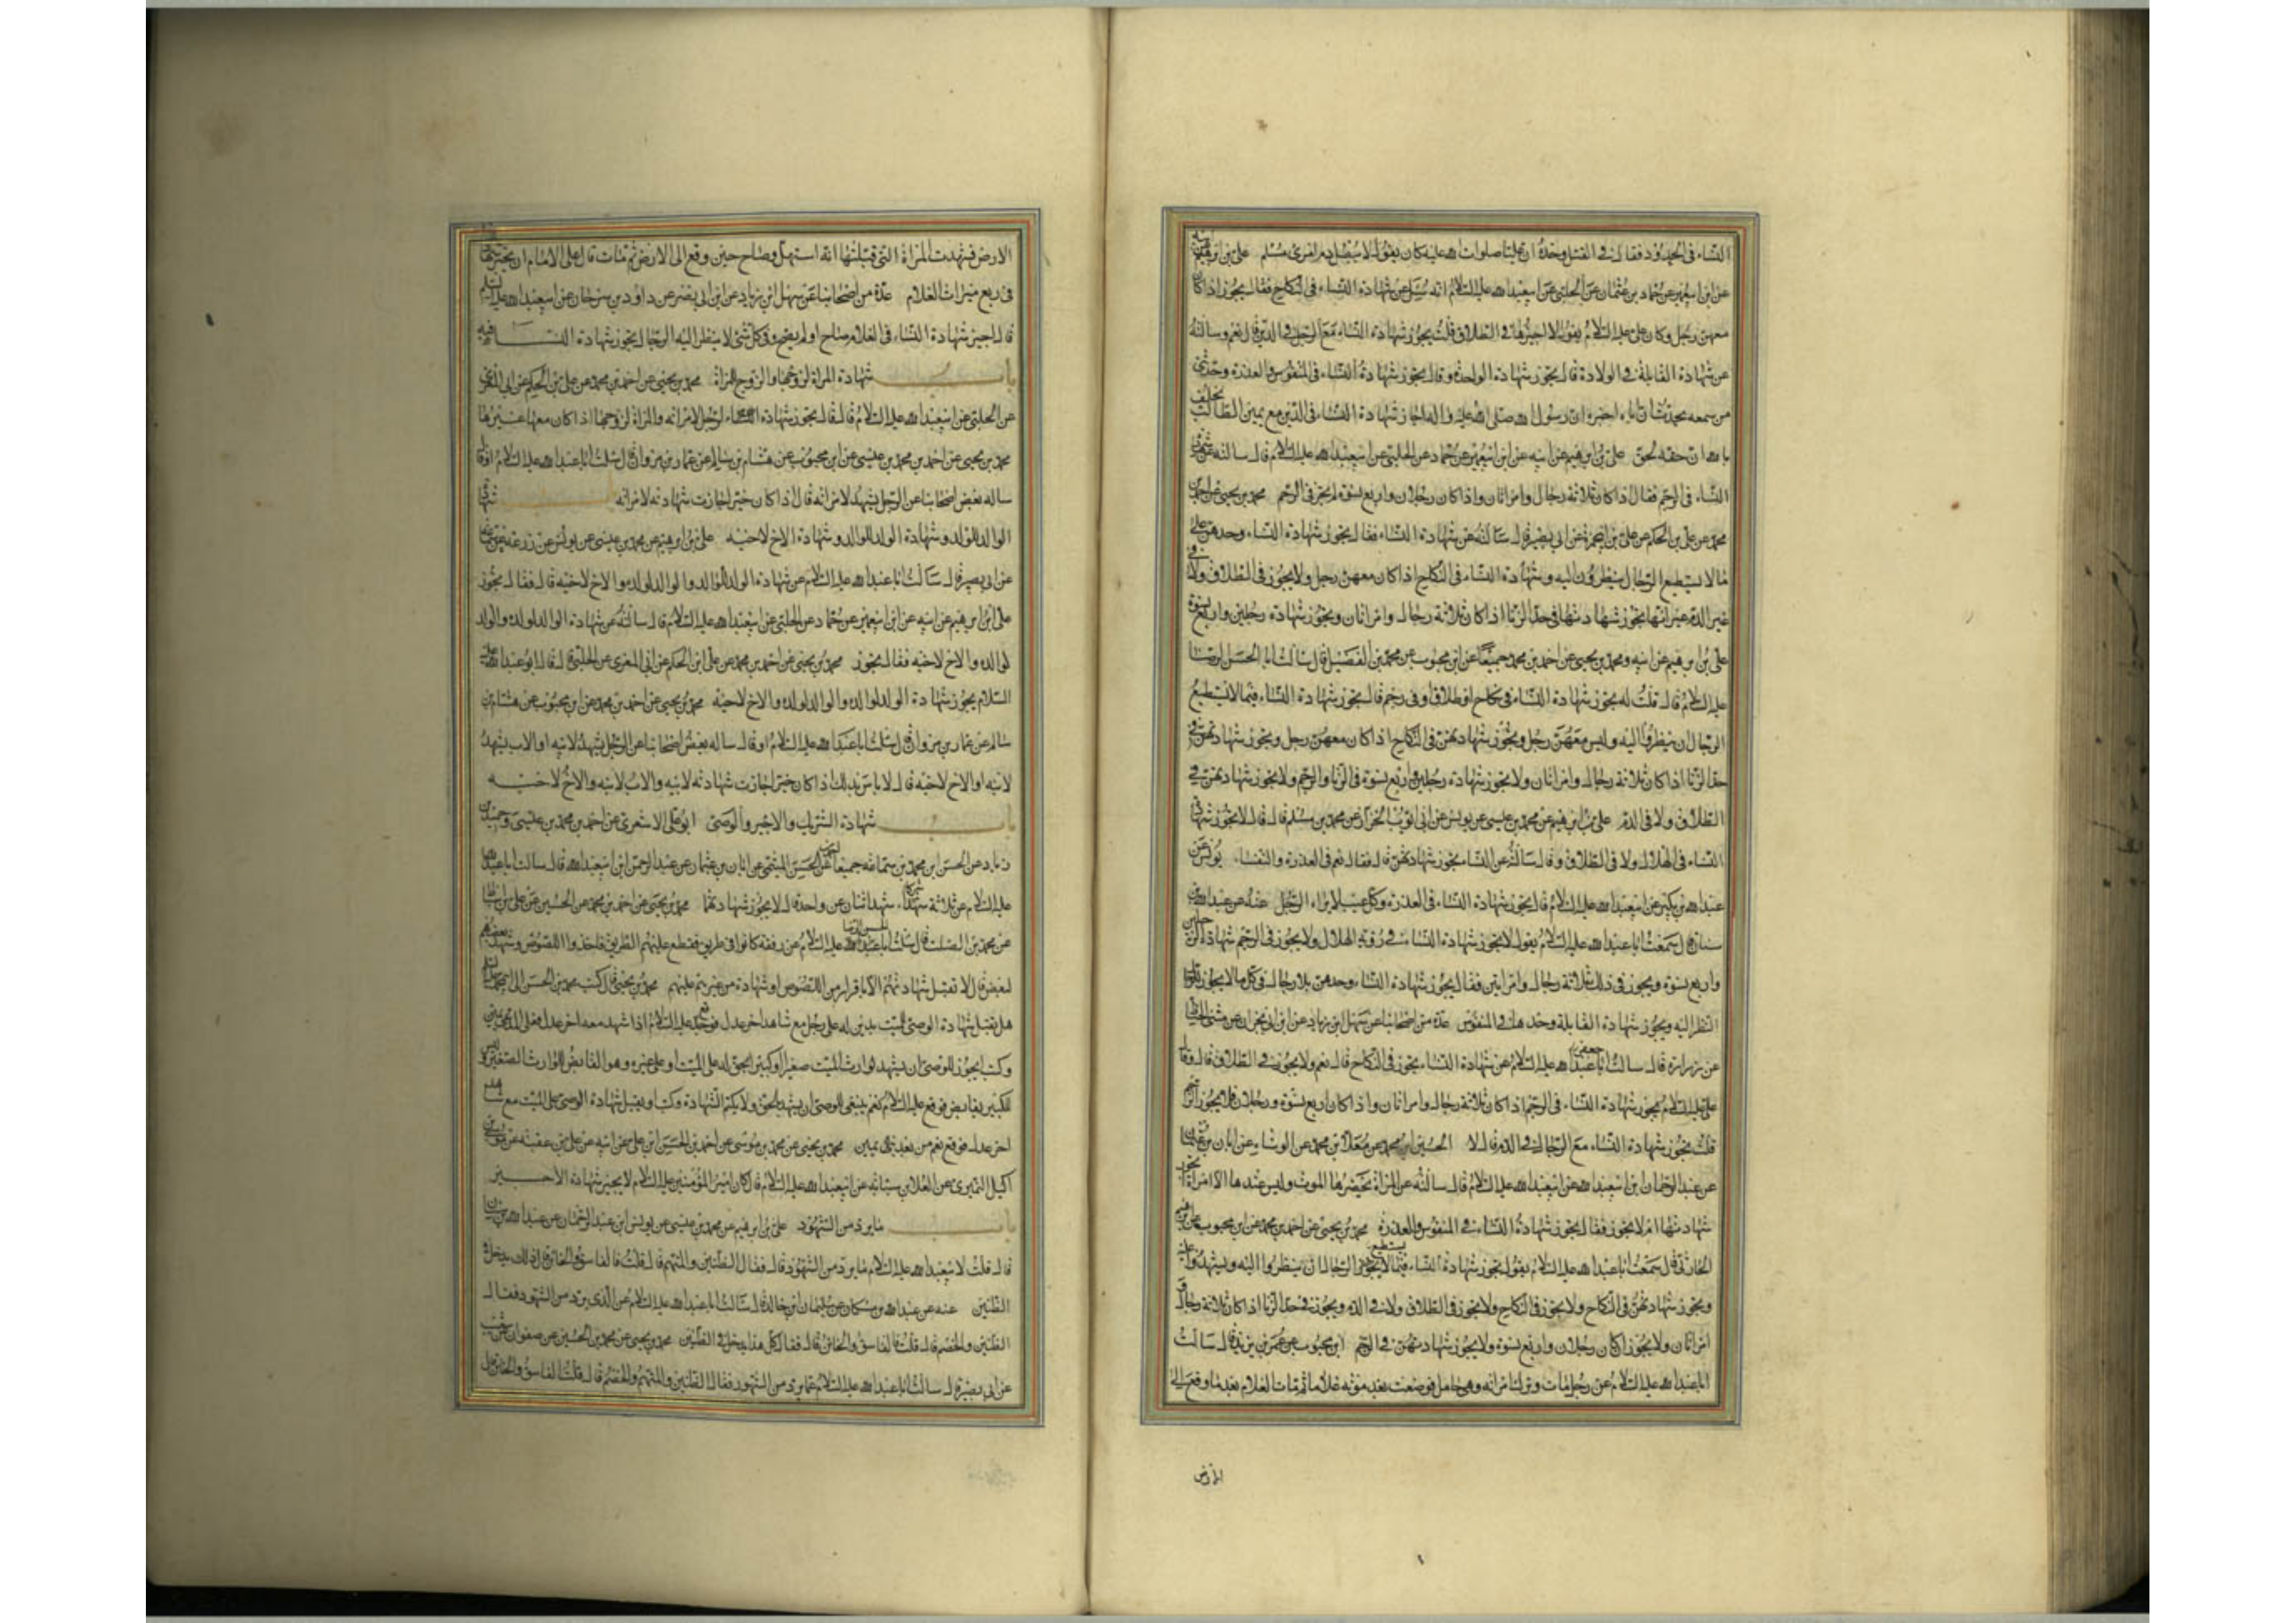 النساء في الحدود فقال في القتل وحده ان عليا صلوات الله عليه كان يقول لا يبطل دم امرئ مسلم علي بن ابرهيم
عن ابن ابي عمير عن حماد بن عثمان عن الحلبي عن ابي عبد الله عليه السلام انه سئل عن شهادة النساء في النكاح فقال يجوز اذا كان
معهن رجل وكان علي عليه السلام يقول لا اجيزها في الطلاق قلت يجوز شهادة النساء مع الرجل في الدين قال نعم وسالته
عن شهادة القابلة في الولادة قال يجوز شهادة الواحدة وقال يجوز شهادة النساء في المنفوس والعذرة وحدثني
من سمعه يحدث ان اباه اخبره ان رسول الله صلى الله عليه واله اجاز شهادة النساء في الدين مع يمين الطالب يحلف
بالله ان حقه لحق علي بن ابرهيم عن ابيه عن ابن ابي عمير عن حماد عن الحلبي عن ابي عبد الله عليه السلام قال سالته عن شهادة
النساء في الرجم فقال اذا كان ثلاثة رجال وامراتان واذا كان رجلان واربع نسوة لم يجز في الرجم محمد بن يحيى عن احمد بن
محمد عن علي بن الحكم عن علي بن ابي حمزة عن ابي بصير قال سالته عن شهادة النساء فقال يجوز شهادة النساء وحدهن على
ما لا يستطيع الرجال ينظرون اليه وشهادة النساء في النكاح اذا كان معهن رجل ولا يجوز في الطلاق ولا في
غير الدم غير انها يجوز شهادتها في حد الزنا اذا كان ثلاثة رجال وامراتان ويجوز شهادة رجلين واربع نسوة
علي بن ابرهيم عن ابيه ومحمد بن يحيى عن احمد بن محمد جميعا عن ابن محبوب عن محمد بن الفضيل قال سالت ابا الحسن الرضا
عليه السلام قال قلت له يجوز شهادة النساء في نكاح او طلاق او في رجم قال يجوز شهادة النساء فيما لا يستطيع
الرجال ان ينظروا اليه وليس معهن رجل ويجوز شهادتهن في النكاح اذا كان معهن رجل ويجوز شهادتهن في
حد الزنا اذا كان ثلاثة رجال وامراتان ولا يجوز شهادة رجلين واربع نسوة في الزنا والرجم ولا يجوز شهادتهن في
الطلاق ولا في الدم علي بن ابرهيم عن محمد بن عيسى عن يونس عن ابي ايوب الخزاز عن محمد بن مسلم قال قال لا يجوز شهادة
النساء في الهلال ولا في الطلاق وقال سالته عن النساء يجوز شهادتهن قال فقال نعم في العذرة والنفساء يونس عن
عبد الله بن بكير عن ابي عبد الله عليه السلام قال يجوز شهادة النساء في العذرة وكل عيب لا يراه الرجل عنه عن عبد الله بن
سنان قال سمعت ابا عبد الله عليه السلام يقول لا يجوز شهادة النساء في رؤية الهلال ولا يجوز في الرجم شهادة رجلين
واربع نسوة ويجوز في ذلك ثلاثة رجال وامراتين فقال يجوز شهادة النساء وحدهن بلا رجال في كل ما لا يجوز للرجال
النظر اليه ويجوز شهادة القابلة وحدها في المنفوس عدة من اصحابنا عن سهل ابن زياد عن ابن ابي نجران عن مثنى الحناط
عن زرارة قال سالت ابا جعفر عليه السلام عن شهادة النساء يجوز في النكاح قال نعم ولا يجوز في الطلاق قال وقال
علي عليه السلام يجوز شهادة النساء في الرجم اذا كان ثلاثة رجال وامراتان واذا كان اربع نسوة ورجلان فلا يجوز الرجم
قلت يجوز شهادة النساء مع الرجال في الدم قال لا الحسين ابن محمد عن معلى بن محمد عن الوشاء عن ابان بن عثمان
عن عبد الرحمان ابن ابي عبد الله عن ابي عبد الله عليه السلام قال سالته عن المراة يحضرها الموت وليس عندها الا امراة يجوز
شهادتها ام لا يجوز فقال يجوز شهادة النساء في المنفوس والعذرة محمد بن يحيى عن احمد بن محمد عن ابن محبوب عن ابرهيم
الحارثي قال سمعت ابا عبد الله عليه السلام يقول يجوز شهادة النساء فيما لا يستطيع الرجال ان ينظروا اليه ويشهدوا عليه
ويجوز شهادتهن في النكاح ولا يجوز في النكاح ولا يجوز في الطلاق ولا في الدم ويجوز في حد الزنا اذا كان ثلاثة رجال و
امراتان ولا يجوز اذا كان رجلان واربع نسوة ولا يجوز شهادتهن في الرجم ابن محبوب عن عمر بن يزيد قال سالت
ابا عبد الله عليه السلام عن رجل مات وترك امراته وهي حامل فوضعت بعد موته غلاما ثم مات الغلام بعد ما وقع الى
الارض
الارض فشهدت المراة التي قبلتها انه استهل وصاح حين وقع الى الارض ثم مات قال على الامام ان يجيز شهادتها
في ربع ميراث الغلام عدة من اصحابنا عن سهل ابن زياد عن ابن ابي نصر عن داود بن سرحان عن ابي عبد الله عليه السلام
قال اجيز شهادة النساء في الغلام صاح او لم يصح وفي كل شئ لا ينظر اليه الرجال يجوز شهادة النساء فيه
باب شهادة المراة لزوجها والزوج للمراة محمد بن يحيى عن احمد بن محمد عن علي بن الحكم عن ابي المغرا
عن الحلبي عن ابي عبد الله عليه السلام قال قال يجوز شهادة الرجل لامراته والمراة لزوجها اذا كان معها غيرها
محمد بن يحيى عن احمد بن محمد بن عيسى عن ابن محبوب عن هشام بن سالم عن عمار بن مروان قال سئلت ابا عبد الله عليه السلام او قال
ساله بعض اصحابنا عن الرجل يشهد لامراته قال اذا كان خيرا جازت شهادته لامراته باب شهادة
الوالد للولد وشهادة الولد للوالد وشهادة الاخ لاخيه علي بن ابرهيم عن محمد بن عيسى عن يونس عن زرعة عن سماعة
عن ابي بصير قال سالت ابا عبد الله عليه السلام عن شهادة الولد لوالده والوالد لولده والاخ لاخيه قال فقال يجوز
علي ابن ابرهيم عن ابيه عن ابن ابي عمير عن حماد عن الحلبي عن ابي عبد الله عليه السلام قال سالته عن شهادة الوالد لولده والولد
لوالده والاخ لاخيه فقال يجوز محمد بن يحيى عن احمد بن محمد عن علي ابن الحكم عن ابي المغرى عن الحلبي قال قال ابو عبد الله عليه
السلام يجوز شهادة الولد لوالده والوالد لولده والاخ لاخيه محمد بن يحيى عن احمد بن محمد عن ابن محبوب عن هشام بن
سالم عن عمار بن مروان قال سئلت ابا عبد الله عليه السلام او قال ساله بعض اصحابنا عن الرجل يشهد لابيه او الاب يشهد
لابنه او الاخ لاخيه قال لا باس بذلك اذا كان خيرا جازت شهادته لابيه والاب لابنه والاخ لاخيه
باب شهادة الشريك والاجير والوصي ابو علي الاشعري عن احمد بن محمد بن عيسى وحميد بن
زياد عن الحسن ابن محمد بن سماعة جميعا عن احمد بن الحسن الميثمي عن ابان بن عثمان عن عبد الرحمن ابن ابي عبد الله قال سالت ابا عبد الله
عليه السلام عن ثلاثة شركاء شهد اثنان عن واحد قال لا يجوز شهادتهما محمد بن يحيى عن احمد بن محمد عن الحسين عن علي بن
عن محمد بن الصلت قال سئلت ابا الحسن الرضا عليه السلام عن رفقة كانوا في طريق فقطع عليهم الطريق فاخذوا اللصوص وشهد بعضهم
لبعض قال لا تقبل شهادتهم الا باقرار من اللصوص او شهادة من غيرهم عليهم محمد بن يحيى قال كتب محمد بن الحسن الى ابي محمد عليه السلام
هل تقبل شهادة الوصي للميت بدين له على رجل مع شاهد اخر عدل فوقع عليه السلام اذا شهد معه اخر عدل فعلى المدعي يمين
وكتب ايجوز للوصي ان يشهد لوارث الميت صغير او كبير بحق له على الميت او على غيره وهو القابض للوارث الصغير وليس
للكبير بقابض فوقع عليه السلام نعم ينبغي للوصي ان يشهد بالحق ولا يكتم الشهادة وكتب او يقبل شهادة الوصي على الميت مع شاهد
اخر عدل فوقع نعم من بعد يمين محمد بن يحيى عن محمد بن موسى عن احمد بن الحسن ابن علي عن ابيه عن علي بن عقبة عن موسى بن
اكيل النميري عن العلا بن سيابة عن ابي عبد الله عليه السلام قال كان امير المؤمنين عليه السلام لا يجيز شهادة الاجير
باب ما يرد من الشهود علي بن ابرهيم عن محمد بن عيسى عن يونس ابن عبد الرحمان عن عبد الله بن سنان
قال قلت لابي عبد الله عليه السلام ما يرد من الشهود قال فقال الظنين والمتهم قال قلت فالفاسق والخائن قال ذلك يدخل في
الظنين عنه عن عبد الله بن مسكان عن سليمان ابن خالد قال سالت ابا عبد الله عليه السلام عن الذي يرد من الشهود فقال
الظنين والخصم قال قلت فالفاسق والخائن قال فقال كل هذا يدخل في الظنين محمد بن يحيى عن محمد بن الحسين عن صفوان عن شعيب
عن ابي بصير قال سالت ابا عبد الله عليه السلام عما يرد من الشهود فقال الظنين والمتهم والخصم قال قلت الفاسق والخائن قال